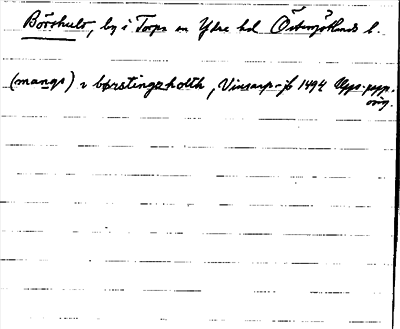 Börshult, by i Torpa sn Ydre hd Östergötlands l.
(mangs) i børstingxholth, Vinsarp-jb 1494 Upps.-papp.
orig.